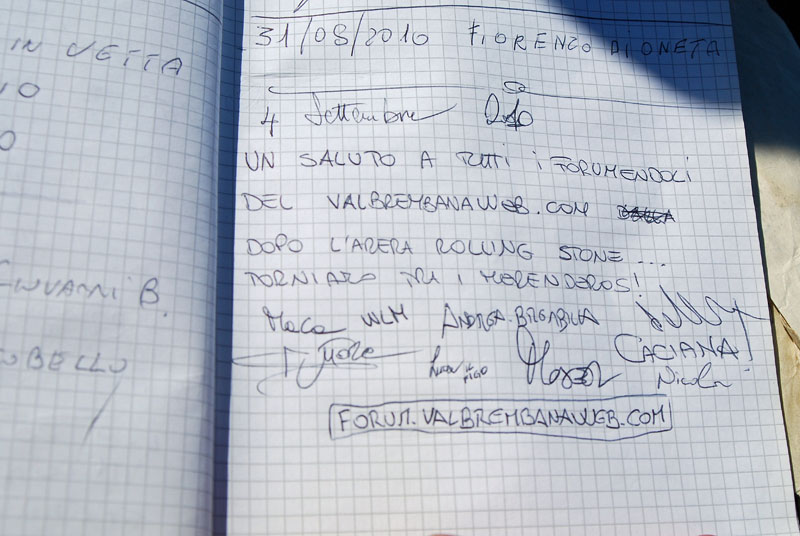 IN VETTA
10
0
GIOVANNI B.
OBELLO
31/08/2010 FIORENZO DI ONETA
4 Settembre 2010
UN SALUTO A TUTTI I FORUMENDOLI
DEL VALBREMBANAWEB.COM
DOPO L'ARERA ROLLING STONE...
TORNIAMO TRA I MERENDEROS!
Maca WLM ANDREA.BREMBILLA
CACIANA!
Nicola
FORUM.VALBREMBANAWEB.COM